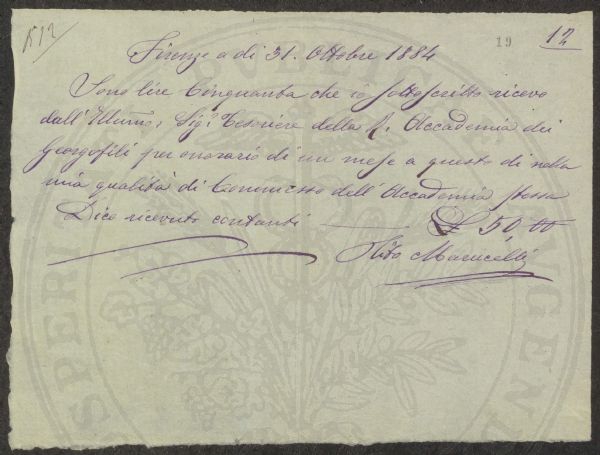 1512
19
12
Firenze a dì 31. Ottobre 1884
Sono lire Cinquanta che io sottoscritto ricevo
dall'Illumo; Sigr Tesoriere della R. Accademia dei
Georgofili per onorario di un mese a questo dì nella
mia qualità di Commesso dell'Accademia stessa
Dico ricevuto contanti £ 50,00
Marucelli
PROSPERI